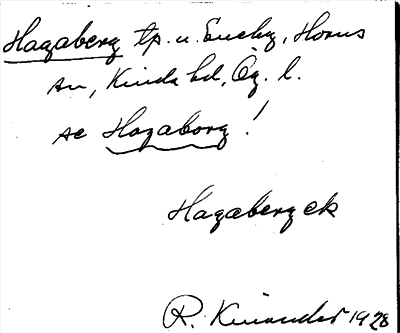 Hagaberg tp. u. Eneby, Horns
sn, Kinda hd, Ög. l.
se Hagaborg!
Hagaberg ck
R. Kinander 1928